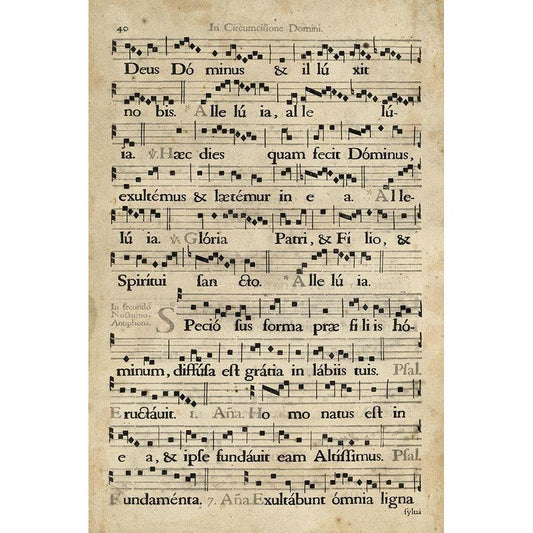 40 In Circumcisione Domini.
Deus Dó minus & il lú xit
no bis. *Alle lú ia, al le lú-
ia. ℣. Hæc dies quam fecit Dóminus,
exultémus & lætémur in e a. *Al le-
lú ia. ℣. Glória Patri, & Fí lio, &
Spirítui san cto. *Al le lú ia.
In secundo
Nocturno.
Antiphona.
SPeció sus forma præ fi li is hó-
minum, diffúsa est grátia in lábiis tuis. Psal.
Eructáuit. 1. Aña. Ho mo natus est in
e a, & ipse fundáuit eam Altíssimus. Psal.
Fundaménta. 7. Aña. Exultábunt ómnia ligna
sylua